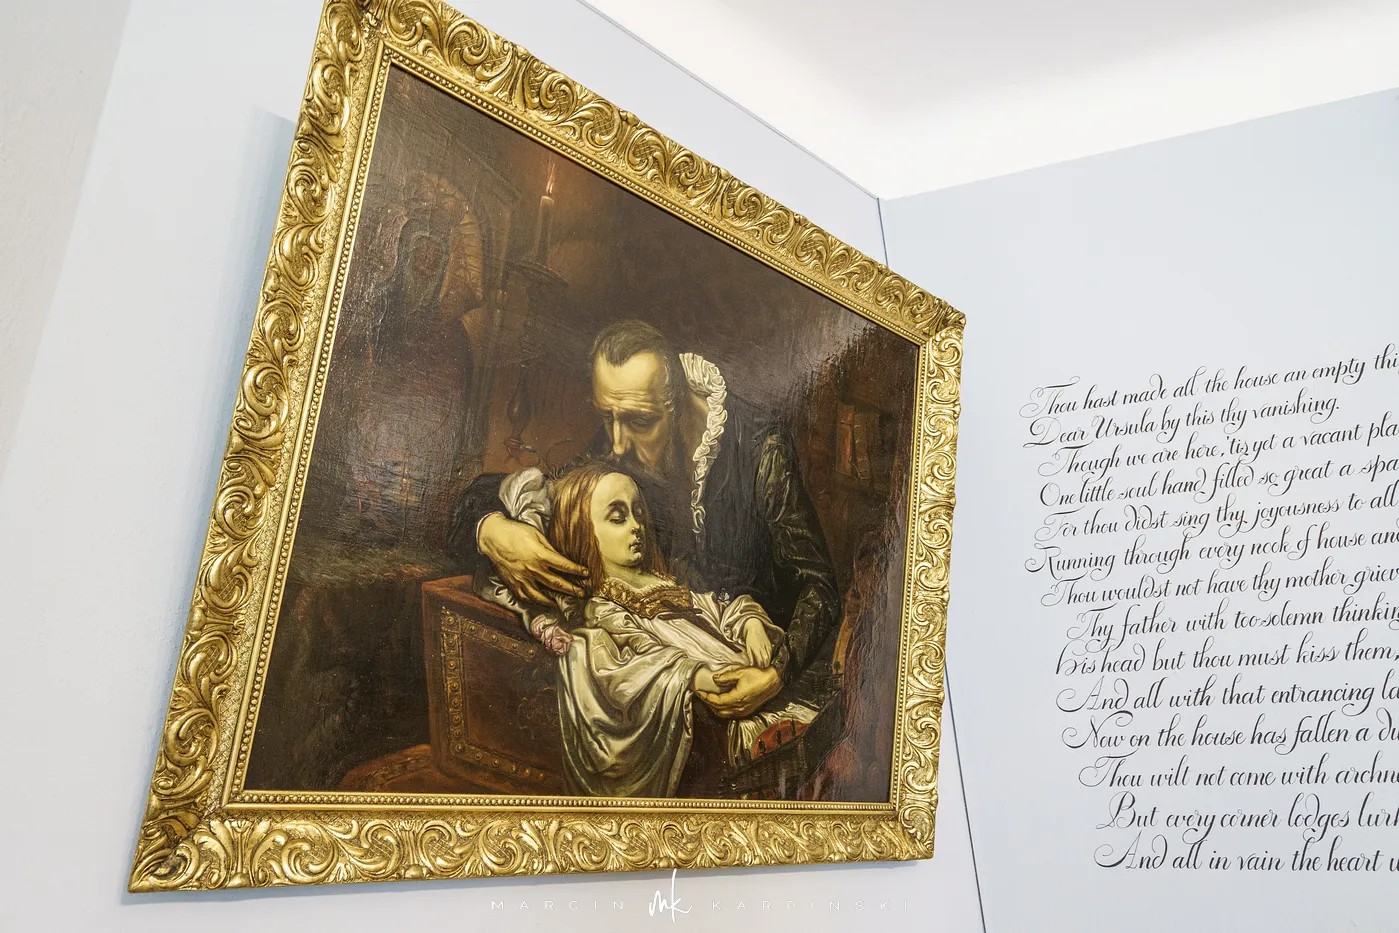 Thou hast made all the house an empty thi
Dear Ursula by this thy vanishing.
Though we are here, 'tis yet a vacant pla
One little soul hand filled so great a spa
For thou didst sing thy joyousness to all
Running through every nook of house and
Thou wouldst not have thy mother griev
Thy father with too solemn thinking
His head but thou must kiss them,
And all with that entrancing la
Now on the house has fallen a du
Thou wilt not come with archn
But every corner lodges lurk
And all in vain the heart
MARCIN mk KARPINSKI